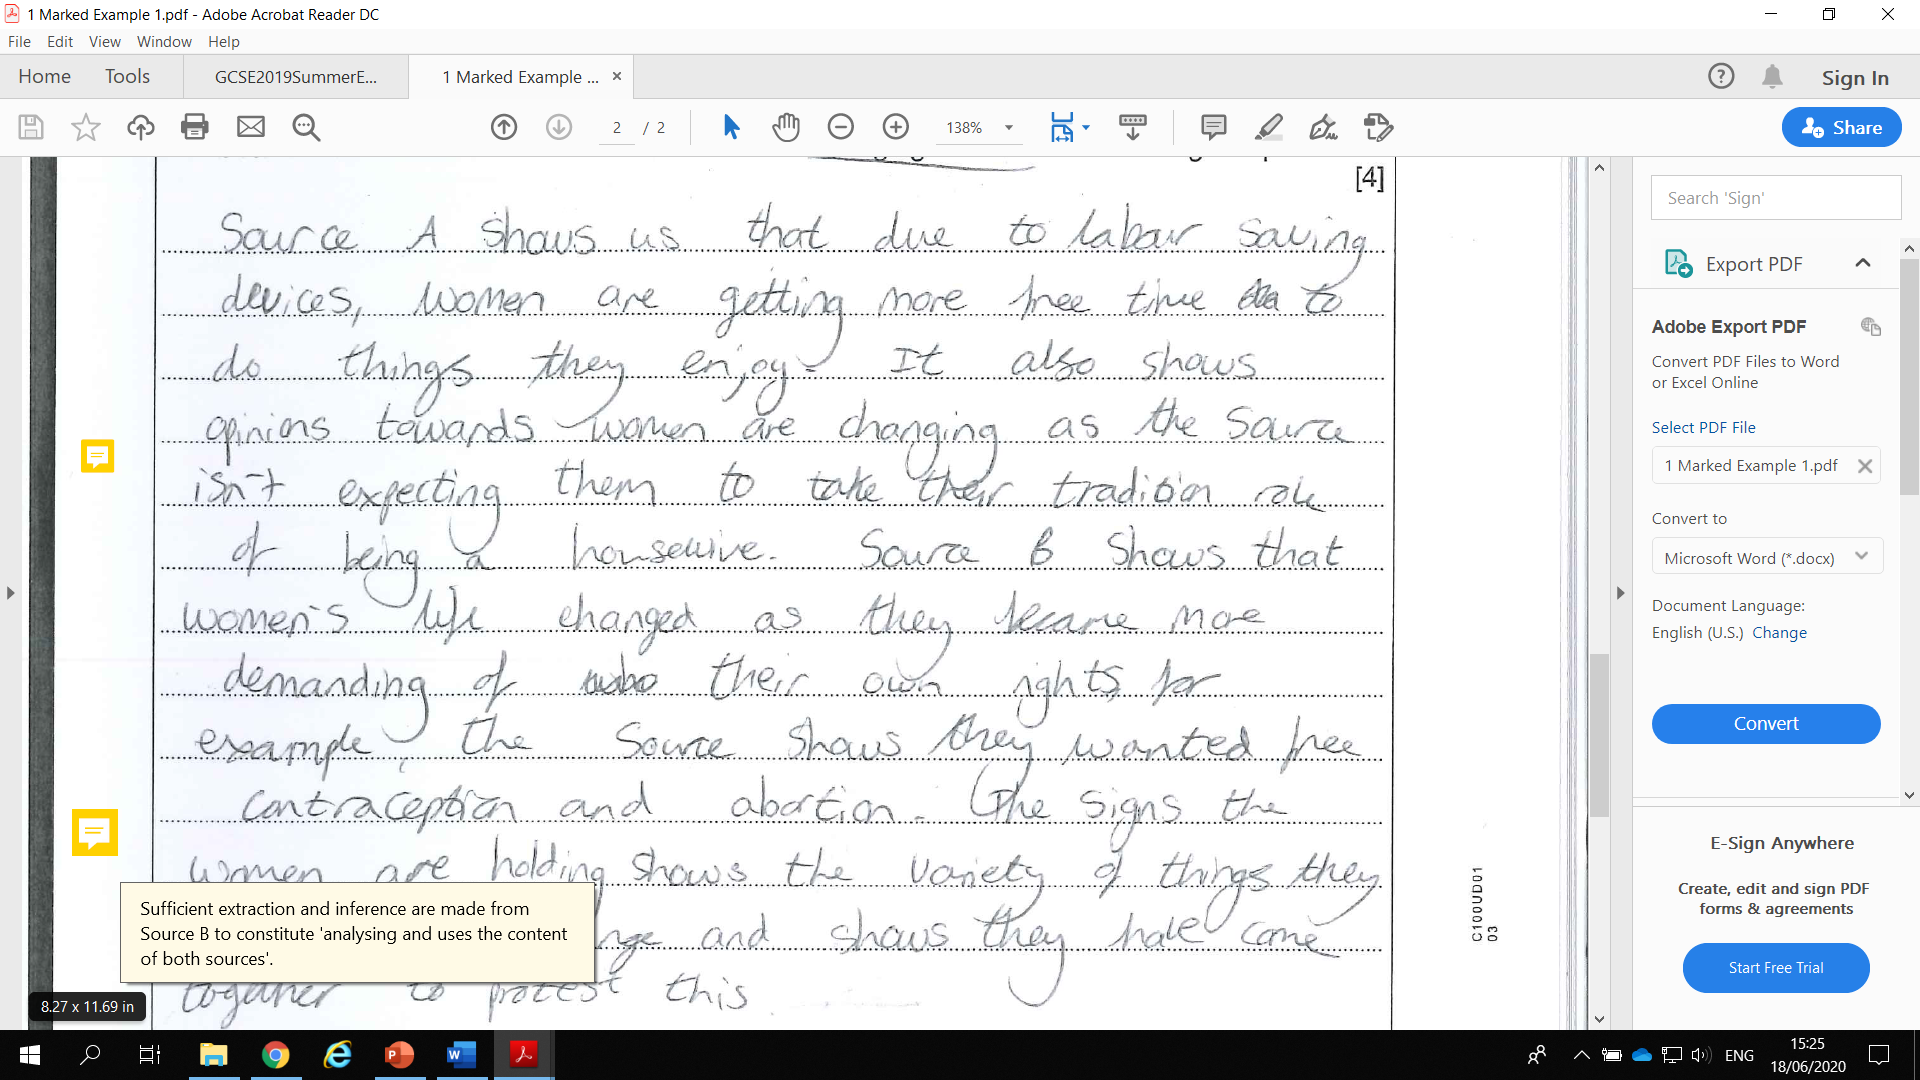 1 Marked Example 1.pdf - Adobe Acrobat Reader DC
File Edit View Window Help
Home Tools GCSE2019SummerE... 1 Marked Example ... ×
Sign In
2 / 2 138% Share
[4]
Source A shows us that due to labour saving
devices, women are getting more free time to
do things they enjoy. It also shows
opinions towards women are changing as the source
isn't expecting them to take their tradition role
of being a housewive. Source B shows that
women's life changed as they became more
demanding of their own rights, for
example, the source shows they wanted free
contraception and abortion. The signs the
women are holding shows the variety of things they
and shows they have come
together to protest this
Sufficient extraction and inference are made from
Source B to constitute 'analysing and uses the content
of both sources'.
8.27 x 11.69 in
C100UD01
03
Search 'Sign'
Export PDF
Adobe Export PDF
Convert PDF Files to Word
or Excel Online
Select PDF File
1 Marked Example 1.pdf
Convert to
Microsoft Word (*.docx)
Document Language:
English (U.S.) Change
Convert
E-Sign Anywhere
Create, edit and sign PDF
forms & agreements
Start Free Trial
ENG
15:25
18/06/2020